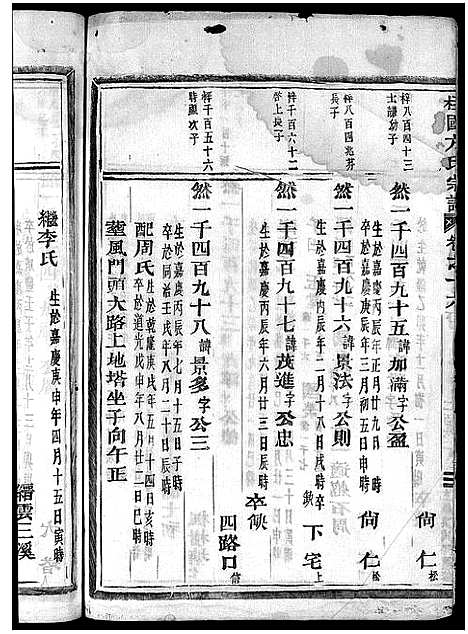 桂國方氏宗譜
梓八百四十三
士謙幼子
然一千四百九十五諱加滿字公盈
生於嘉慶丙辰年正月廿九日 時
卒於嘉慶戊辰年三月初五日申時
尙仁松
梓八百四
長子
然一千四百九十六諱景法字公則
生於嘉慶丙辰年二月十八日戌時
卒缺
下宅上
梓千百六十二
啓上長子
然一千四百九十七諱茂進字公忠
生於嘉慶丙辰年六月廿三日辰時
卒缺
四路口
梓千百五十六
時顯次子
然一千四百九十八諱景多字公三
生於嘉慶丙辰年七月十五日子時
卒於同治壬戌年八月二十日辰時
配周氏
生於乾隆庚戌年五月十四日亥時
卒於道光戊申年八月廿二日巳時
葬風門頭大路上地塔坐子向午正
繼李氏
生於嘉慶庚申年四月十五日寅時
縉雲三溪